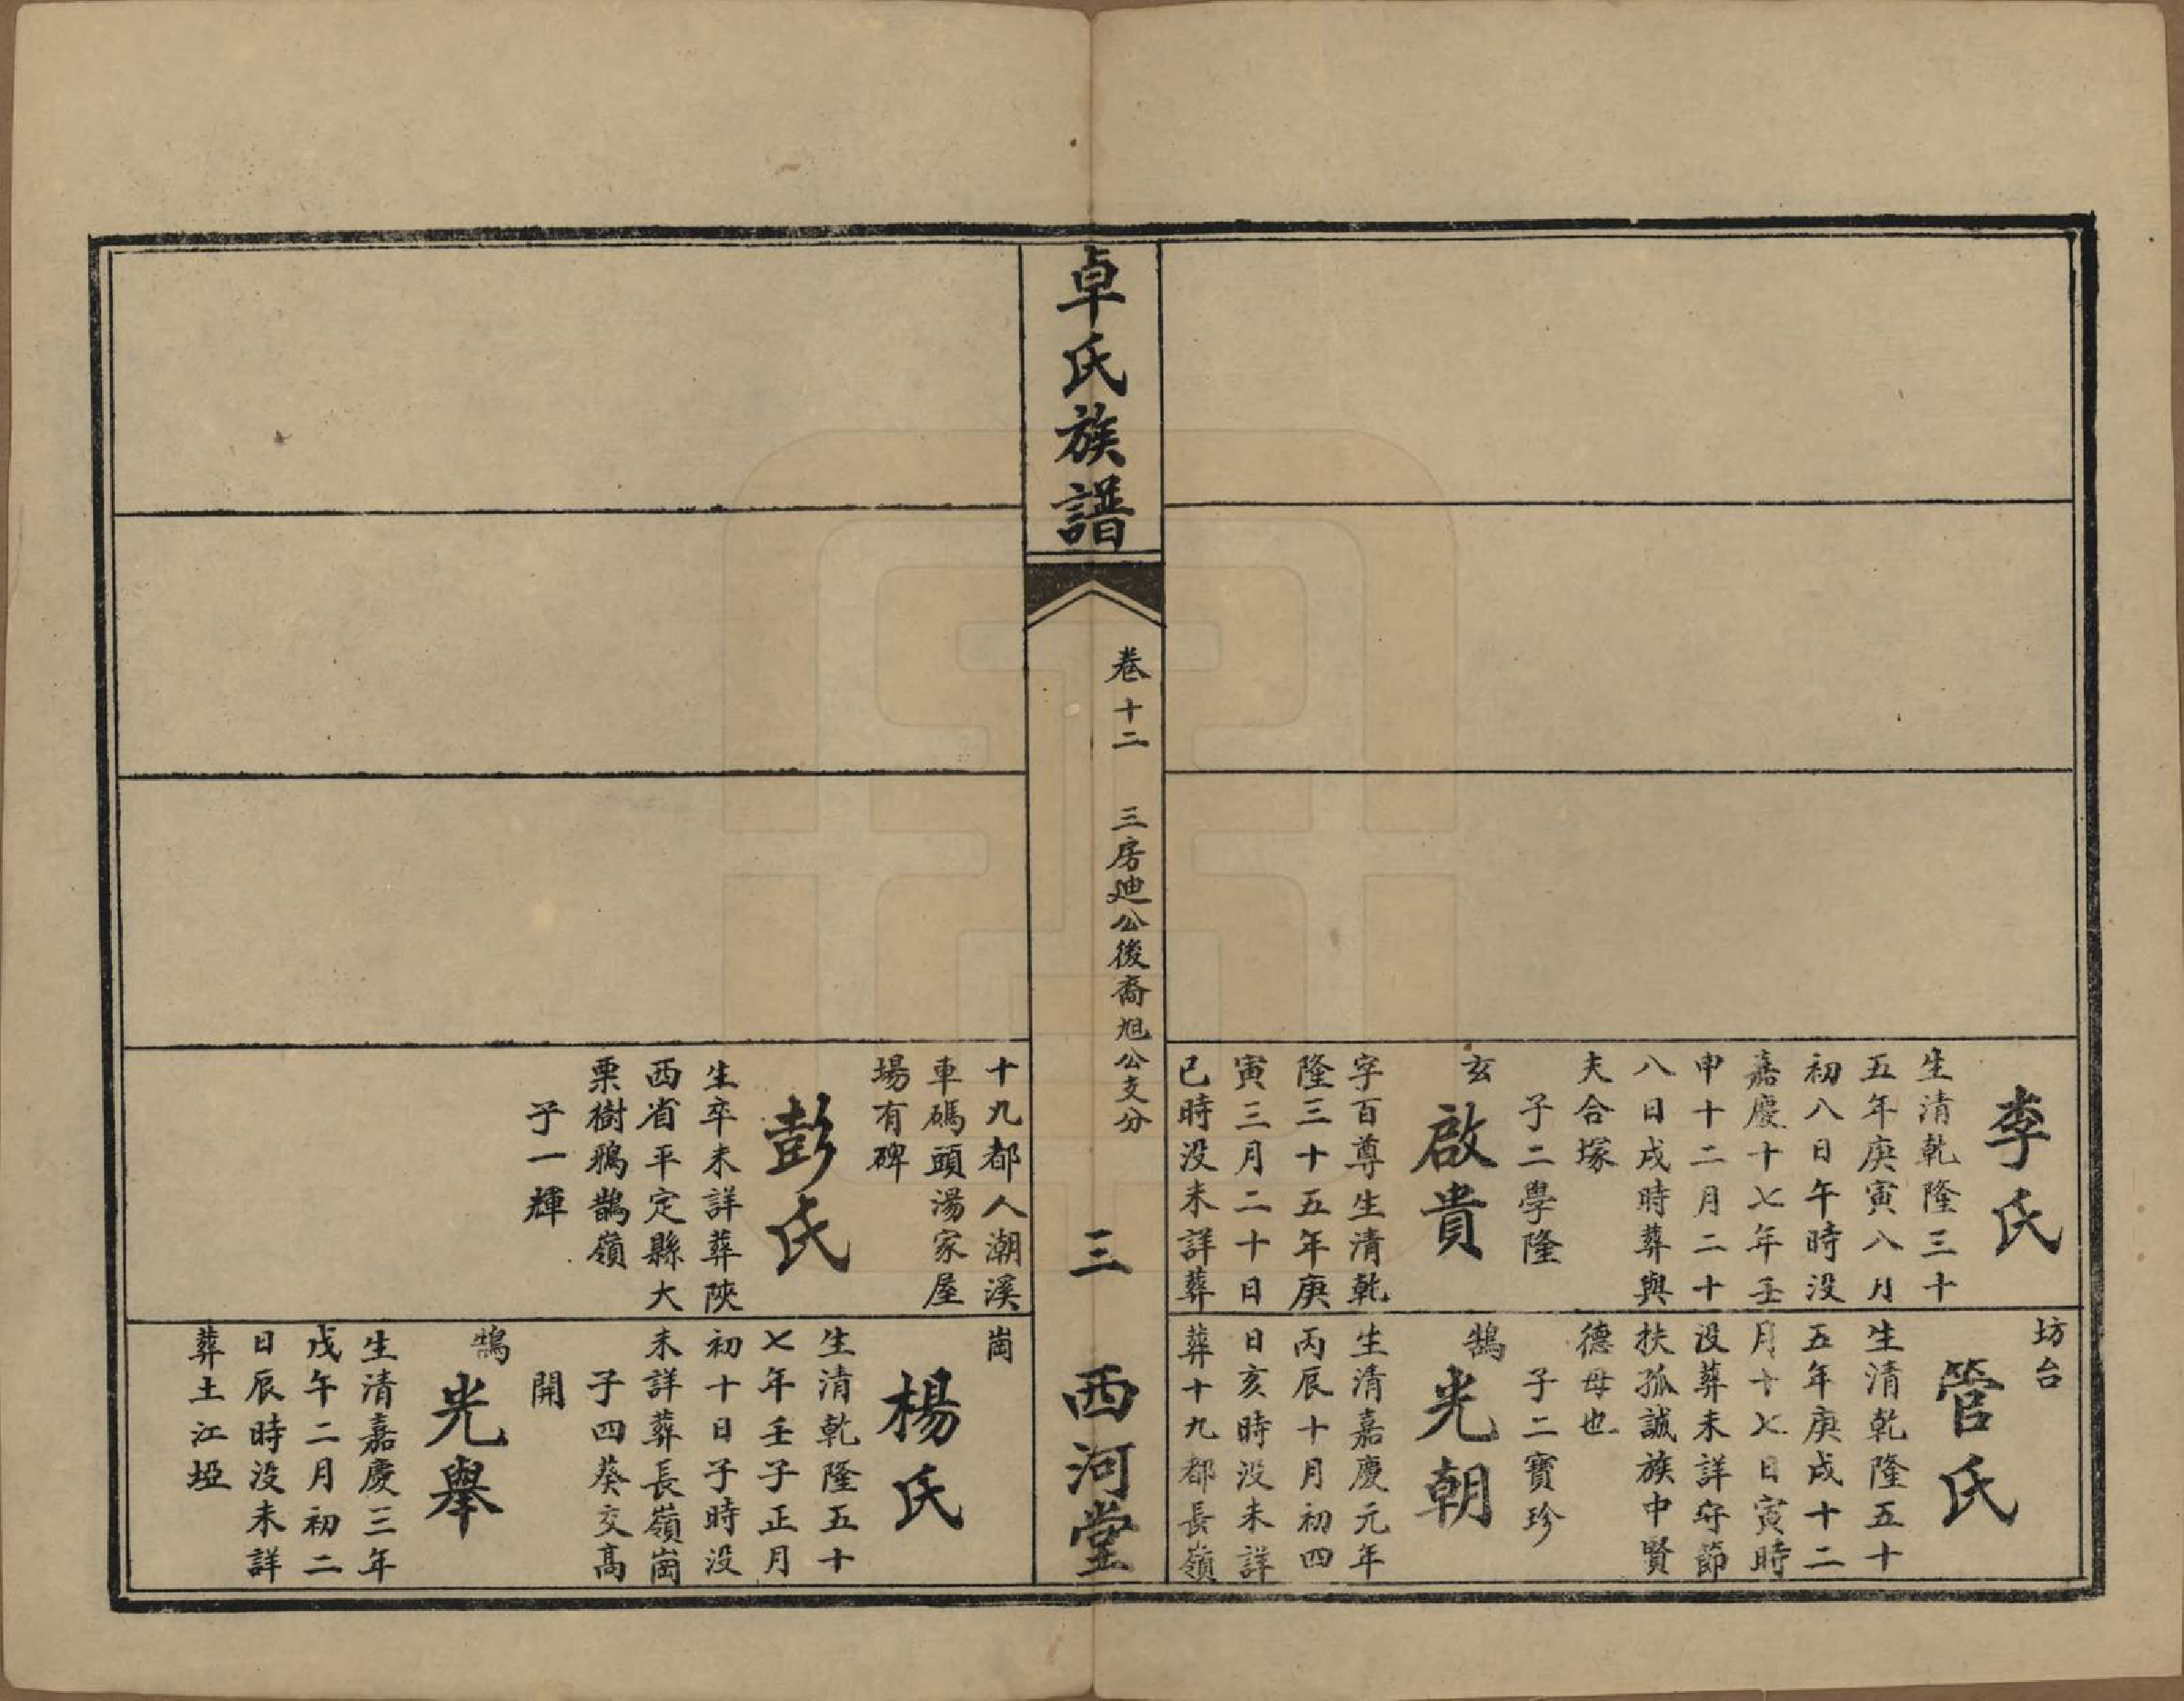 李氏
生清乾隆三十
五年庚寅八月
初八日午時没
嘉慶十七年壬
申十二月二十
八日戌時葬與
夫合塚
子二學隆
玄
啟貴
字百尊生清乾
隆三十五年庚
寅三月二十日
已時没未詳葬
坊台
管氏
生清乾隆五十
五年庚戌十二
月十七日寅時
没葬未詳守節
扶孤誠族中賢
德母也
子二寶珍
鵠
光朝
生清嘉慶元年
丙辰十月初四
日亥時没未詳
葬十九都長嶺
卓氏族譜
卷十二 三房廸公後裔旭公支分
三 西河堂
十九都人潮溪
車碼頭湯家屋
場有碑
彭氏
生卒未詳葬陝
西省平定縣大
栗樹鴉鵲嶺
子一輝
崗
楊氏
生清乾隆五十
七年壬子正月
初十日子時没
未詳葬長嶺崗
子四葵交高
開
鵠
光舉
生清嘉慶三年
戊午二月初二
日辰時没未詳
葬土江埡